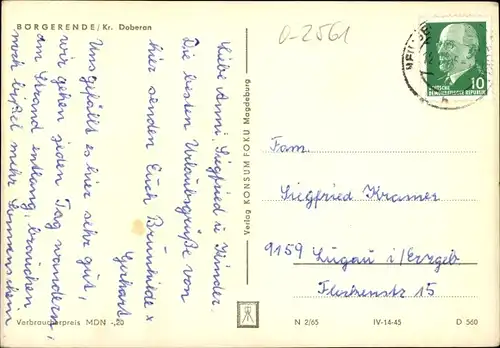 BÖRGERENDE/Kr. Doberan
0-2561
10
DEUTSCHE
DEMOKRATISCHE REPUBLIK
Liebe Anni, Siegfried u. Kinder.
Die besten Urlaubsgrüße von
hier senden Euch Brunhilde +
Gerhart.
Uns gefällt es hier sehr gut,
wir gehen jeden Tag wandern,
am Strand entlang, brauchen
noch bißel mehr Sonnenschein
Verlag KONSUM FOKU Magdeburg
Fam.
Siegfried Kramer
9159 Lugau i/Erzgeb
Flockenstr 15
Verbraucherpreis MDN -,20
N 2/65
IV-14-45
D 560